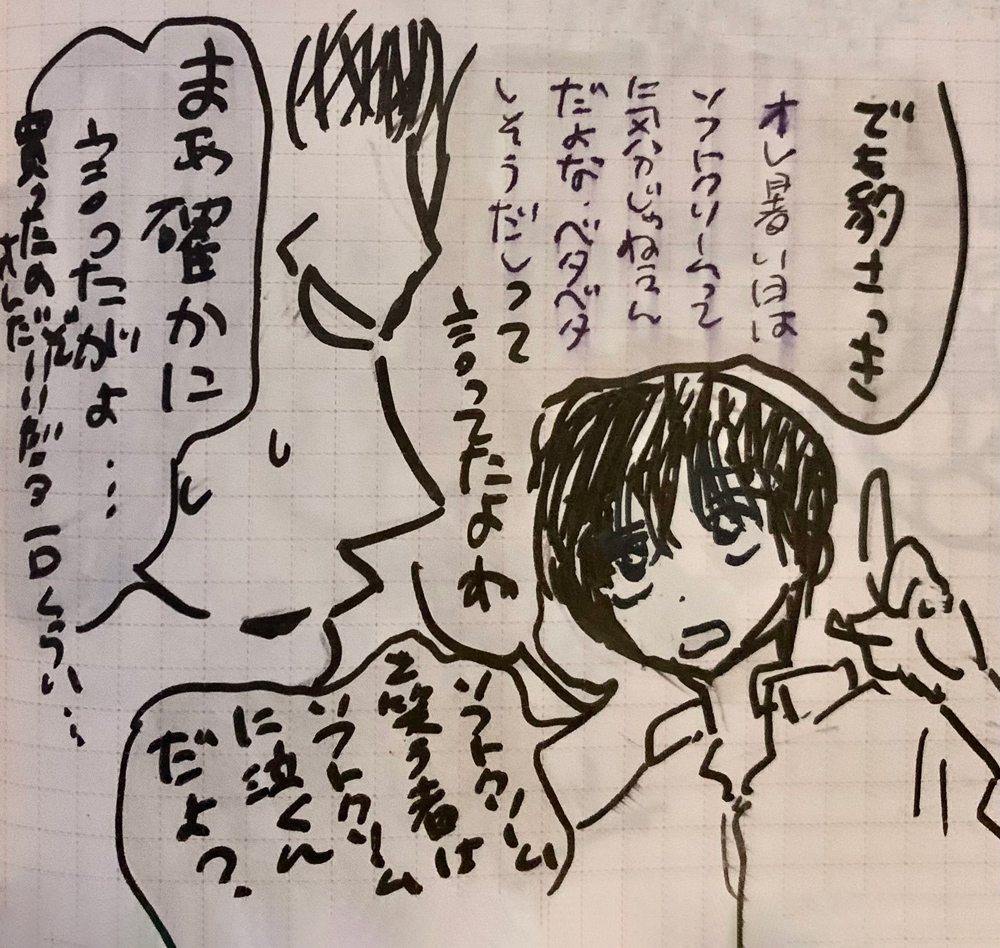 でも豹さっき
オレ暑い日は
ソフトクリームって
気分じゃねえん
だよな、ベタベタ
しそうだしって
言ってたよね
ソフトクリーム
を笑う者は
ソフトクリーム
に泣くん
だよっ
まぁ確かに
言ったがよ…
買ったのオレだぞ
一口くらい…